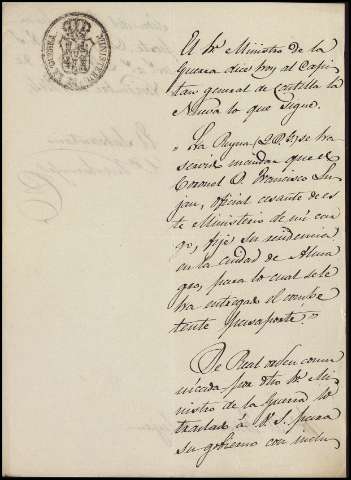 MINISTERIO DE LA GUERRA
El Sr. Ministro de la
Guerra dice hoy al Capi-
tan general de Castilla la
Nueva lo que sigue.
"La Reyna (Q. D. G.) se ha
servido mandar que el
Coronel D. Francisco Lu-
jan, oficial cesante de es-
te Ministerio de mi car-
go, fije su residencia
en la ciudad de Alma
gro, para lo cual se le
ha entregado el compe-
tente pasaporte."
De Real orden comu-
nicada por dho Sr. Mi-
nistro de la Guerra lo
traslado á V. S. para
su gobierno con inclu-